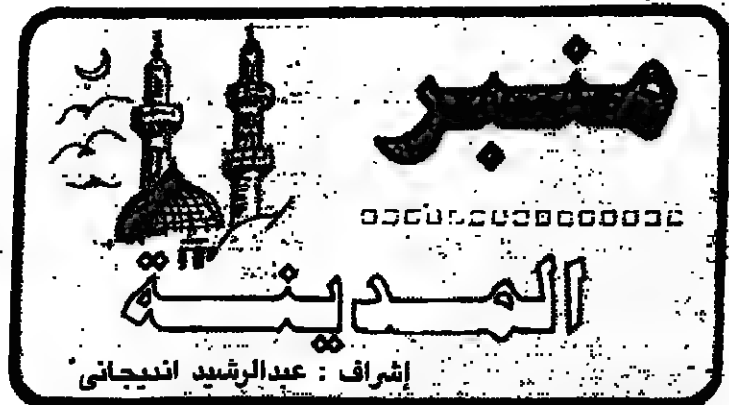 منبر
المدينة
إشراف : عبدالرشيد انديجانى